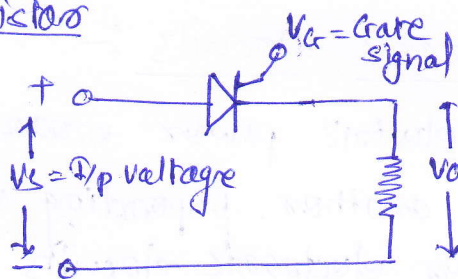 istor
VG = Gate
signal
+
Vs = I/p voltage
Vo
−